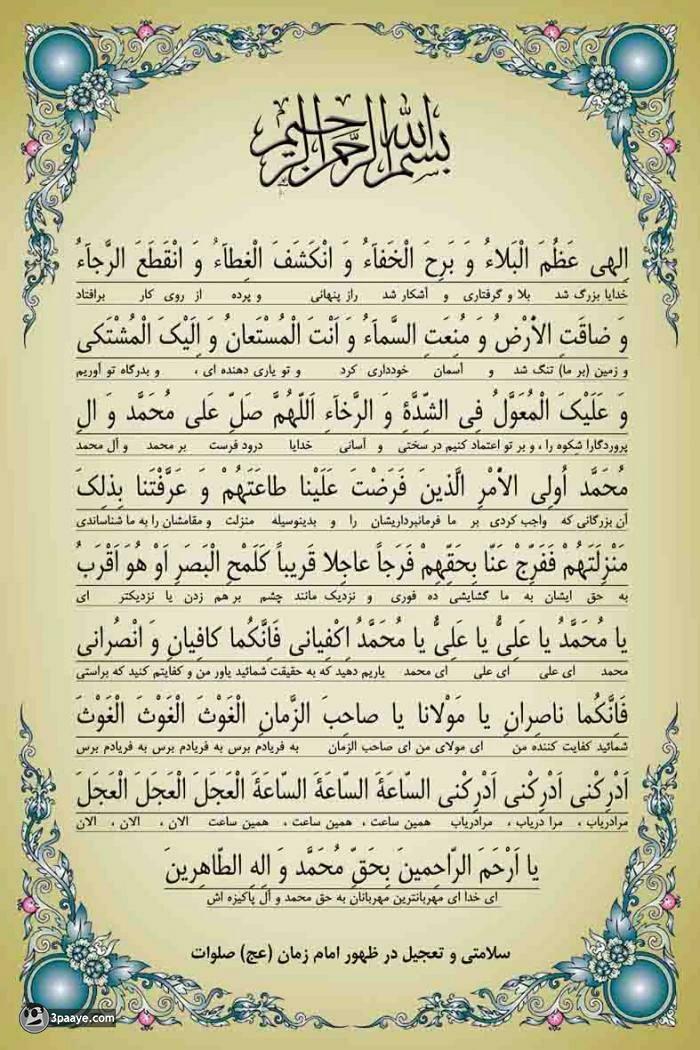 بسم الله الرحمن الرحیم
اِلهی عَظُمَ الْبَلاءُ وَ بَرِحَ الْخَفاَءُ وَ انْکَشَفَ الْغِطاَءُ وَ انْقَطَعَ الرَّجاَءُ
خدایا بزرگ شد بلا و گرفتاری و آشکار شد راز پنهانی و پرده از روی کار برافتاد
وَ ضاقَتِ الاْرْضُ وَ مُنِعَتِ السَّماَءُ وَ اَنْتَ الْمُسْتَعانُ وَ اِلَیْکَ الْمُشْتَکی
و زمین (بر ما) تنگ شد و آسمان خودداری کرد و تو یاری دهنده ای ، و بدرگاه تو آوریم
وَ عَلَیْکَ الْمُعَوَّلُ فِی الشِّدَّةِ وَ الرَّخاَءِ اَللّهُمَّ صَلِّ عَلی مُحَمَّد وَ الِ
پروردگارا شکوه را ، و بر تو اعتماد کنیم در سختی و آسانی خدایا درود فرست بر محمد و آل محمد
مُحَمَّد اُولِی الاَْمْرِ الَّذینَ فَرَضْتَ عَلَیْنا طاعَتَهُمْ وَ عَرَّفْتَنا بِذلِکَ
آن بزرگانی که واجب کردی بر ما فرمانبرداریشان را و بدینوسیله منزلت و مقامشان را به ما شناساندی
مَنْزِلَتَهُمْ فَفَرِّجْ عَنّا بِحَقِّهِمْ فَرَجاً عاجِلا قَریباً کَلَمْحِ الْبَصَرِ اَوْ هُوَ اَقْرَبُ
به حق ایشان به ما گشایشی ده فوری و نزدیک مانند چشم بر هم زدن یا نزدیکتر ای
یا مُحَمَّدُ یا عَلِیُّ یا عَلِیُّ یا مُحَمَّدُ اِکْفِیانی فَاِنَّکُما کافِیانِ وَ انْصُرانی
محمد ای علی ای علی ای محمد یاریم دهید که به حقیقت شمائید یاور من و کفایتم کنید که براستی
فَاِنَّکُما ناصِرانِ یا مَوْلانا یا صاحِبَ الزَّمانِ الْغَوْثَ الْغَوْثَ الْغَوْثَ
شمائید کفایت کننده من ای مولای من ای صاحب الزمان به فریادم برس به فریادم برس به فریادم برس
اَدْرِکْنی اَدْرِکْنی اَدْرِکْنی السّاعَةَ السّاعَةَ السّاعَةَ الْعَجَلَ الْعَجَلَ الْعَجَلَ
مرادریاب ، مرا دریاب ، مرادریاب همین ساعت ، همین ساعت ، همین ساعت الان ، الان ، الان
یا اَرْحَمَ الرّاحِمینَ بِحَقِّ مُحَمَّد وَ الِهِ الطّاهِرینَ
ای خدا ای مهربانترین مهربانان به حق محمد و آل پاکیزه اش
سلامتی و تعجیل در ظهور امام زمان (عج) صلوات
3paaye.com